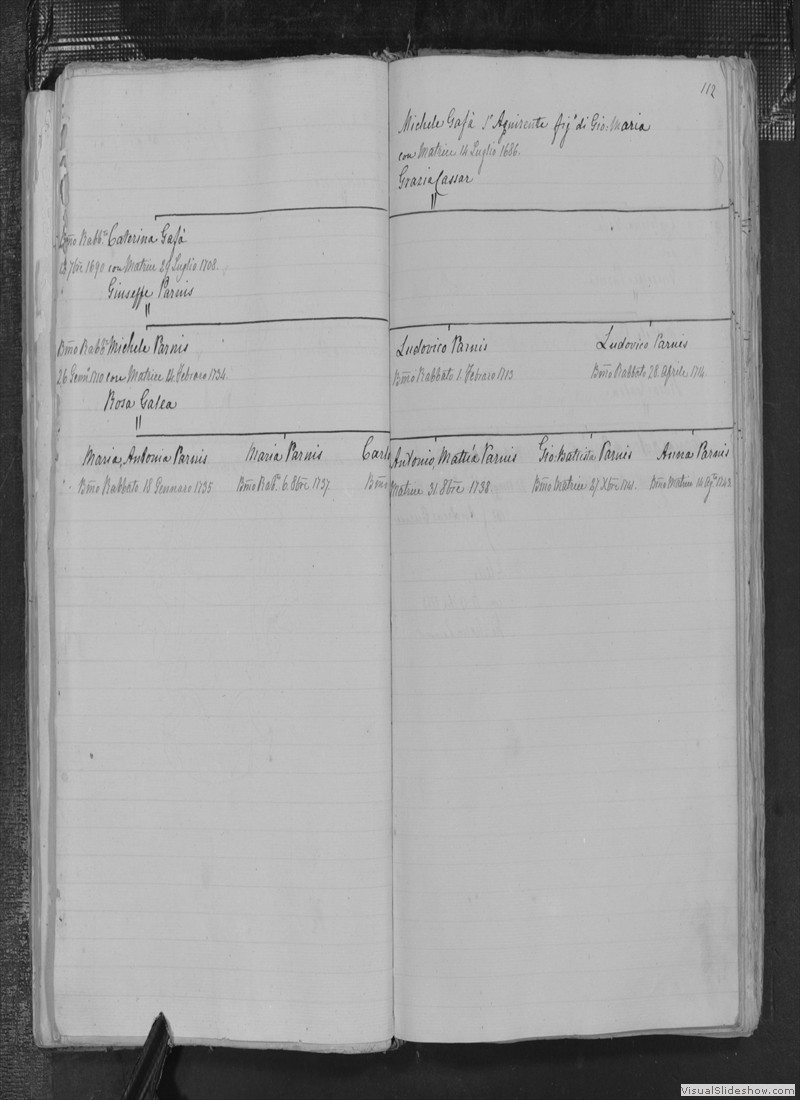 112
Michele Gafà 1º Aquirente figº di Gio: Maria
con Matrice 14 Luglio 1686.
Grazia Cassar
Bmo Rabbto Caterina Gafà
7bre 1690 con Matrice 29 Luglio 1708.
Giuseppe Parnis
Bmo Rabbto Michele Parnis
26 Gennº 1710 con Matrice 14 Febraro 1734.
Rosa Galea
Ludovico Parnis
Bmo Rabbato 1. Febraro 1713
Ludovico Parnis
Bmo Rabbato 28 Aprile 1714.
Maria Antonia Parnis
Bmo Rabbato 18 Gennaro 1735
Maria Parnis
Bmo Rabto 6. 8bre 1737.
Carlo Antonio, Mattia Parnis
Bmo Matrice 31. 8bre 1738
Gio: Battista Parnis
Bmo Matrice 27 Xbre 1741.
Anna Parnis
Bmo Matrice 14 1743.
VisualSlideshow.com